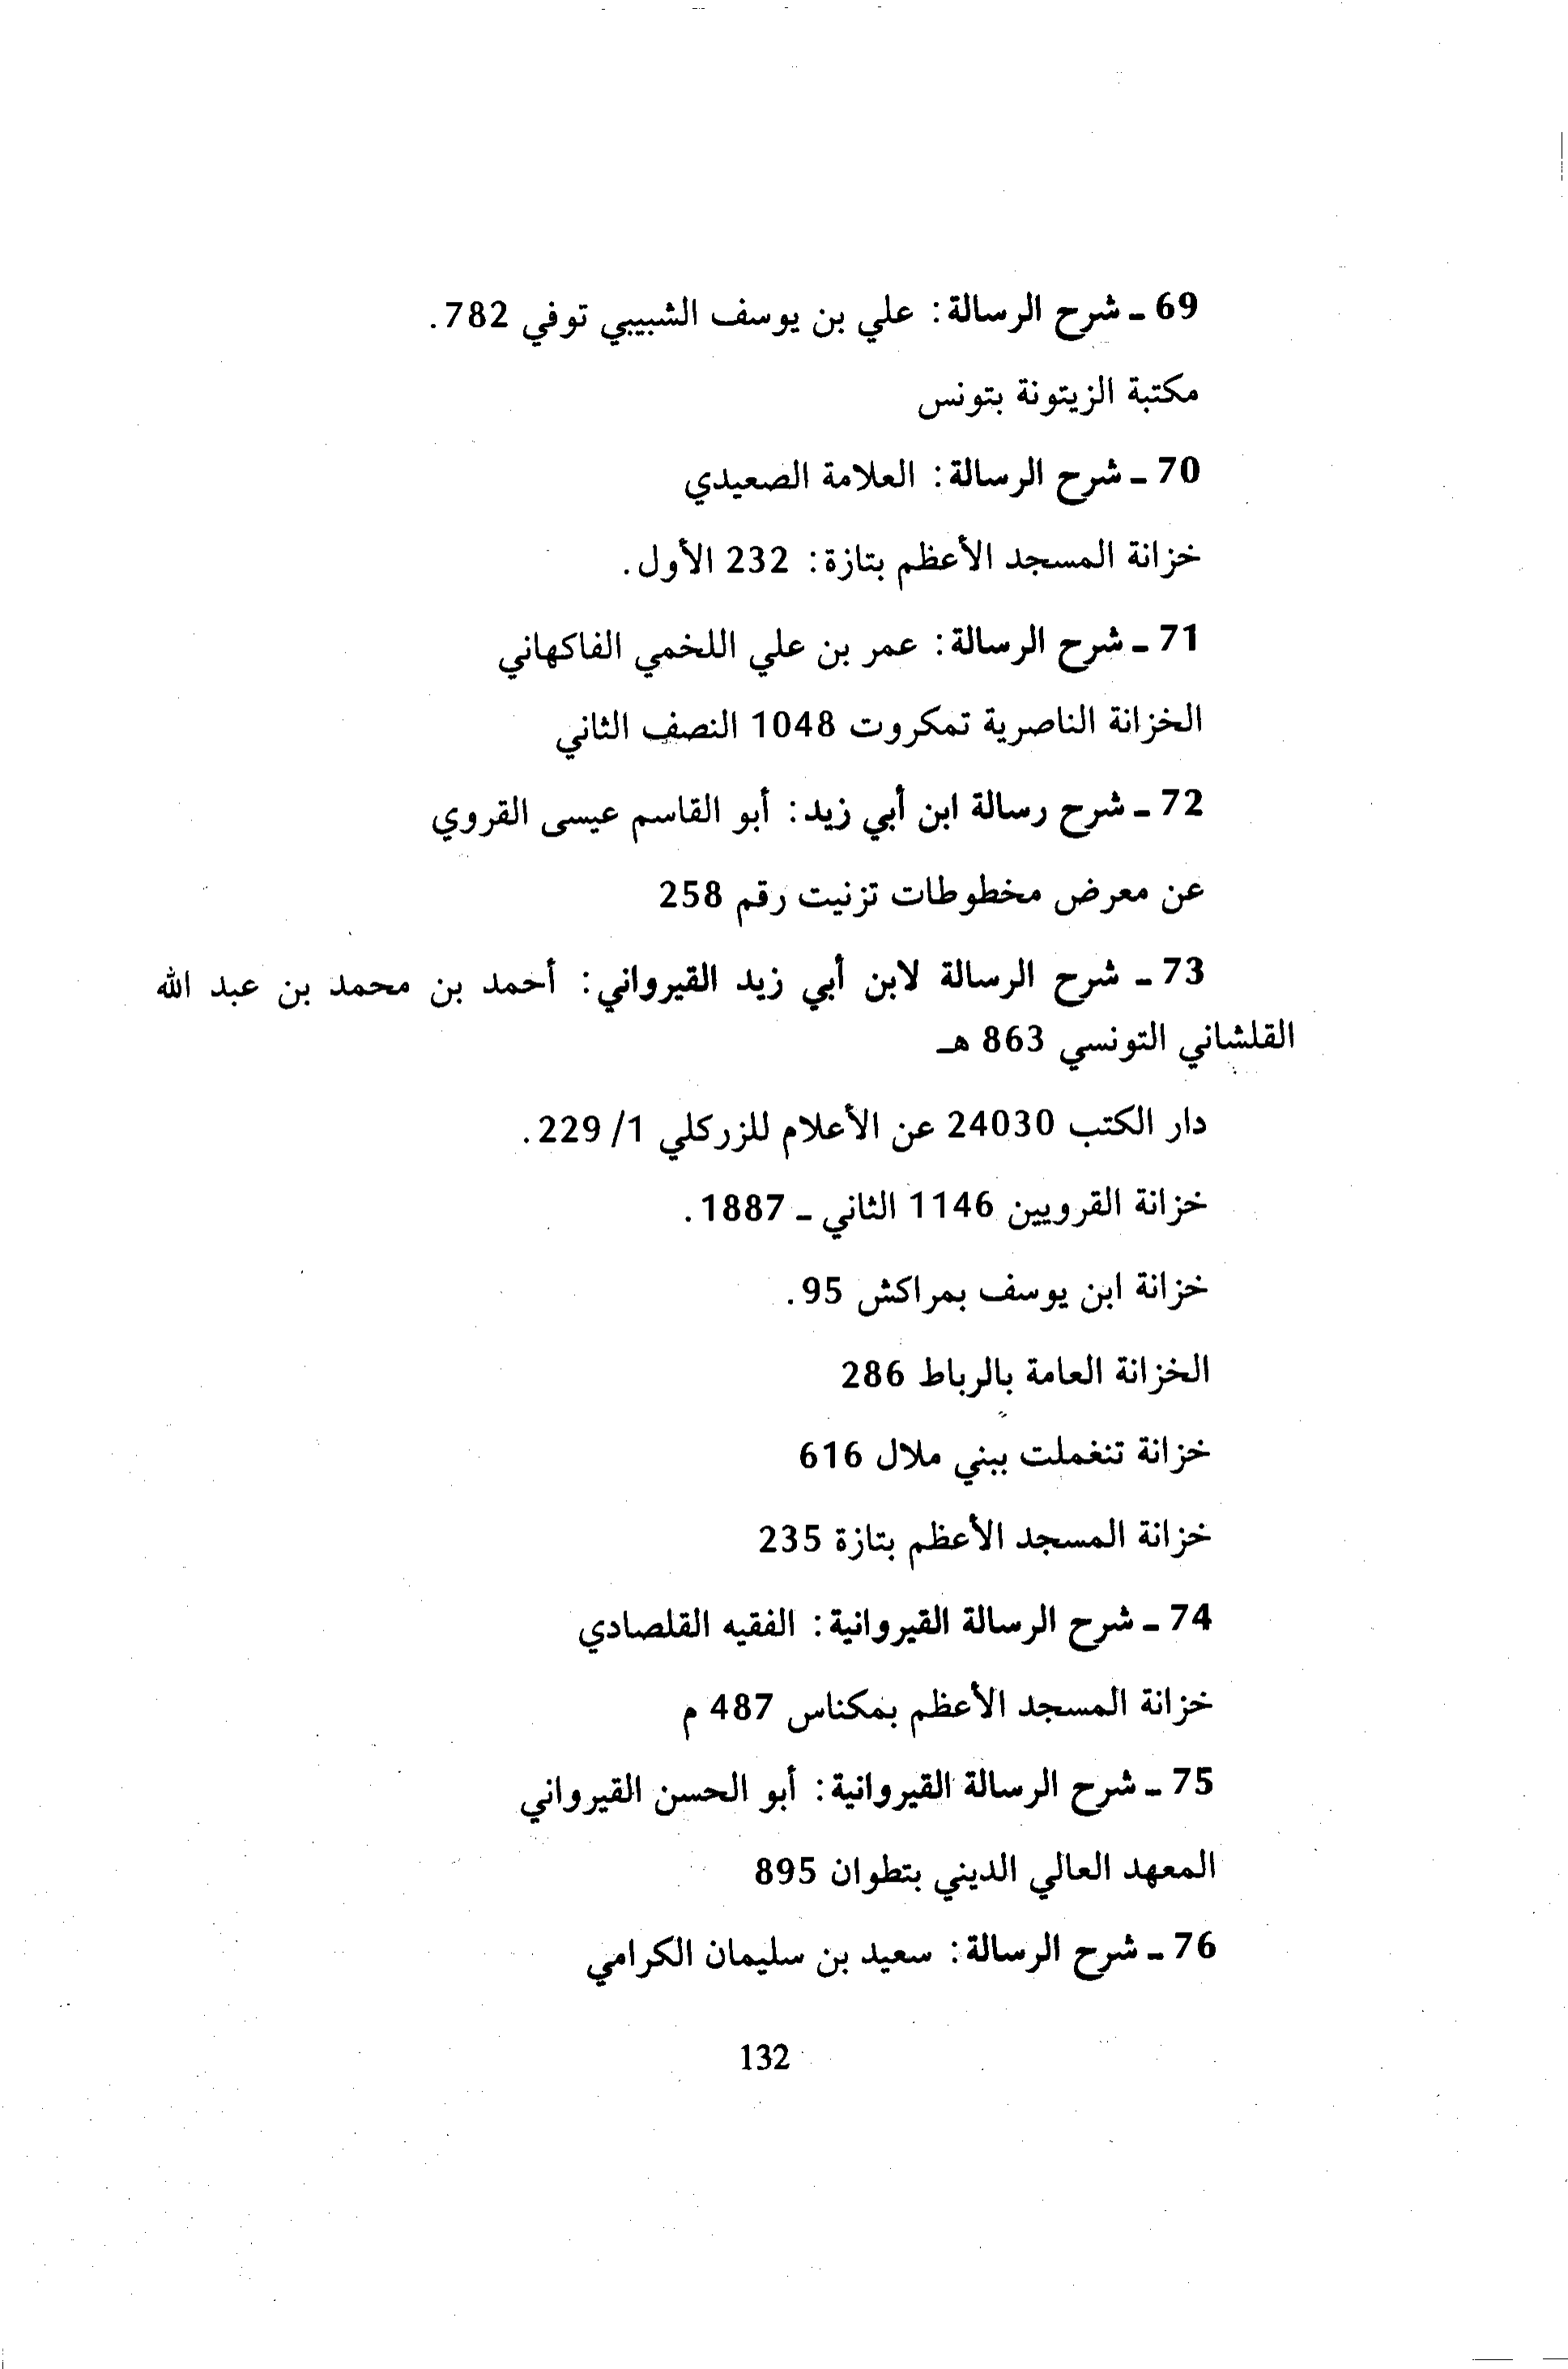 69 ـ شرح الرسالة: علي بن يوسف الشبيبي توفي 782.
مكتبة الزيتونة بتونس
70 ـ شرح الرسالة: العلامة الصعيدي
خزانة المسجد الأعظم بتازة: 232 الأول.
71 ـ شرح الرسالة: عمر بن علي اللخمي الفاكهاني
الخزانة الناصرية تمكروت 1048 النصف الثاني
72 ـ شرح رسالة ابن أبي زيد: أبو القاسم عيسى القروي
عن معرض مخطوطات تزنيت رقم 258
73 ـ شرح الرسالة لابن أبي زيد القيرواني: أحمد بن محمد بن عبد الله
القلشاني التونسي 863 هـ
دار الكتب 24030 عن الأعلام للزركلي 1/ 229.
خزانة القرويين 1146 الثاني ـ 1887.
خزانة ابن يوسف بمراكش 95.
الخزانة العامة بالرباط 286
خزانة تنغملت ببني ملال 616
خزانة المسجد الأعظم بتازة 235
74 ـ شرح الرسالة القيروانية: الفقيه القلصادي
خزانة المسجد الأعظم بمكناس 487 م
75 ـ شرح الرسالة القيروانية: أبو الحسن القيرواني
المعهد العالي الديني بتطوان 895
76 ـ شرح الرسالة: سعيد بن سليمان الكرامي
132